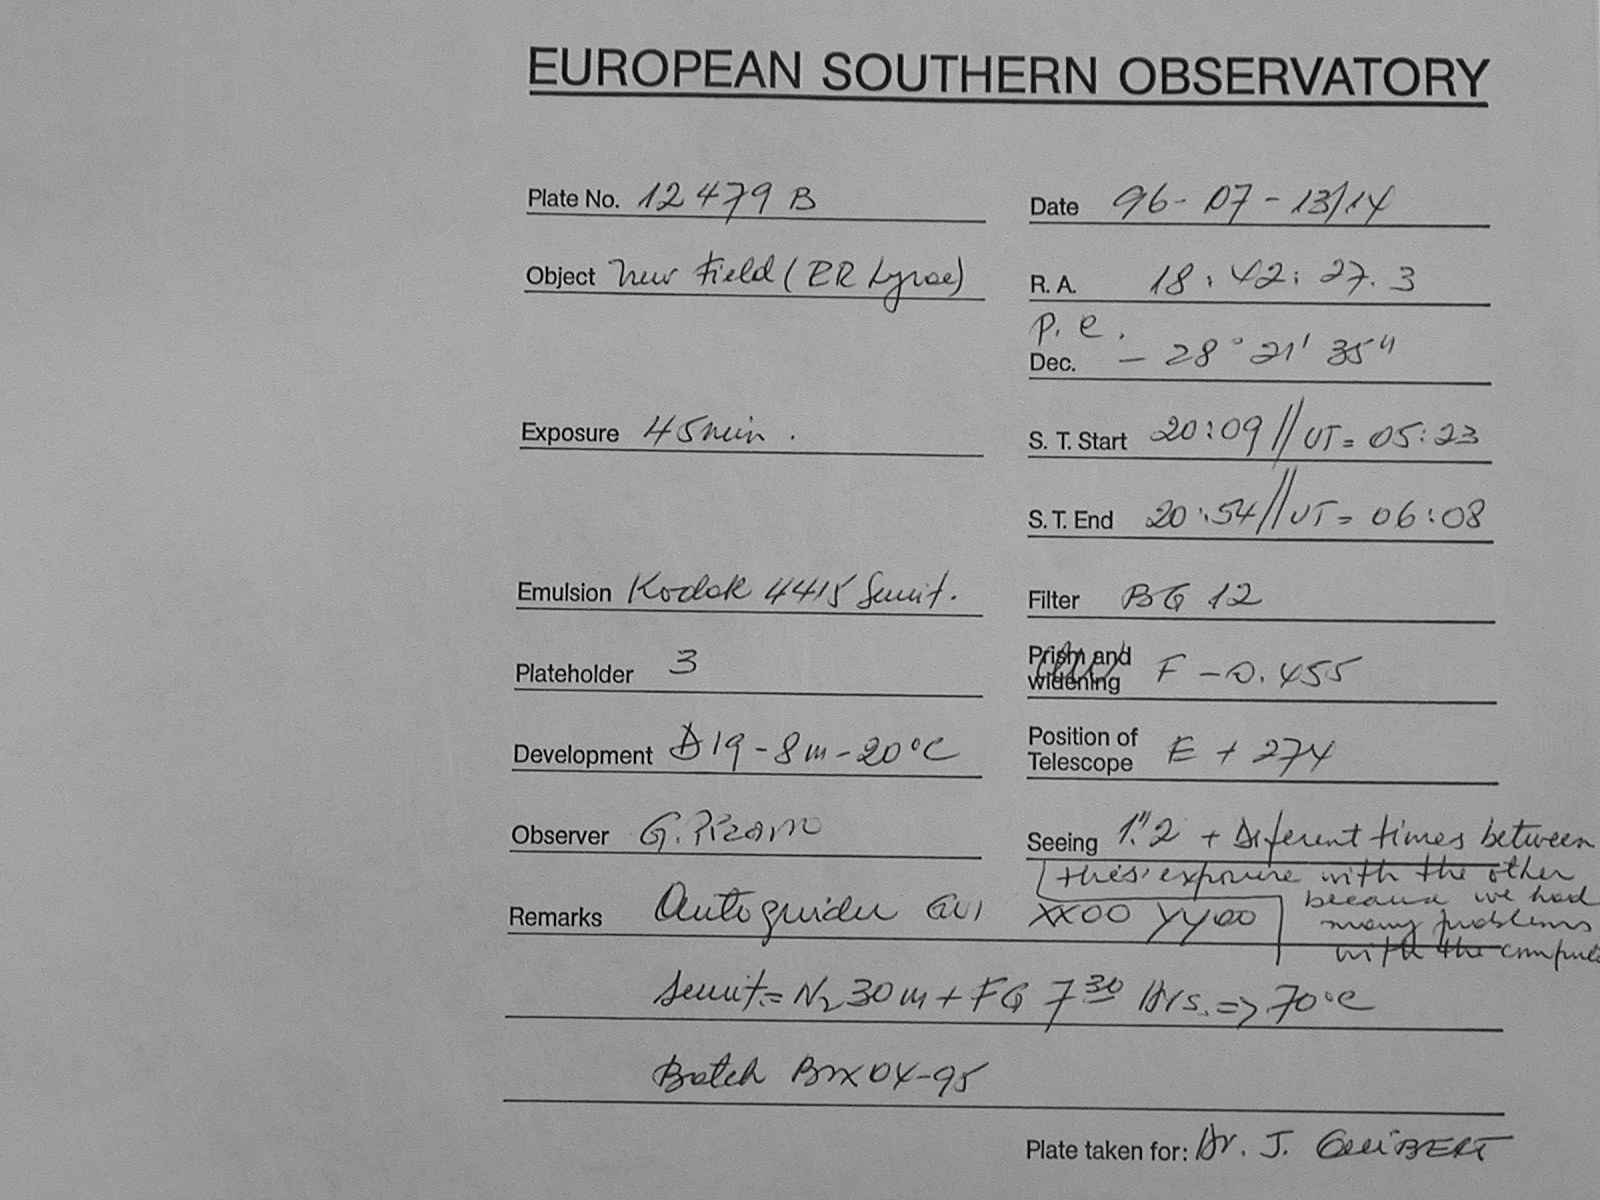 EUROPEAN SOUTHERN OBSERVATORY
Plate No. 12479 B
Date 96-07-13/14
Object New Field (RR Lyrae)
R. A. 18:42:27.3
p. e.
Dec. - 28° 21' 35"
Exposure 45 min.
S. T. Start 20:09 // UT = 05:23
S. T. End 20:54 // UT = 06:08
Emulsion Kodak 4415 Sensit.
Filter BG 12
Plateholder 3
Prism and widening F - 0.455
Development D19 - 8m - 20°C
Position of Telescope E + 274
Observer G. Pizarro
Seeing 1."2 + Diferent times between
this exposure with the other
because we had
many problems
with the
Remarks Autoguider XX00 YY00
Sensit.= N2 30m + FG 7 30 Hrs. => 70°C
Batch Box 04-95
Plate taken for: Dr. J. GUIBERT